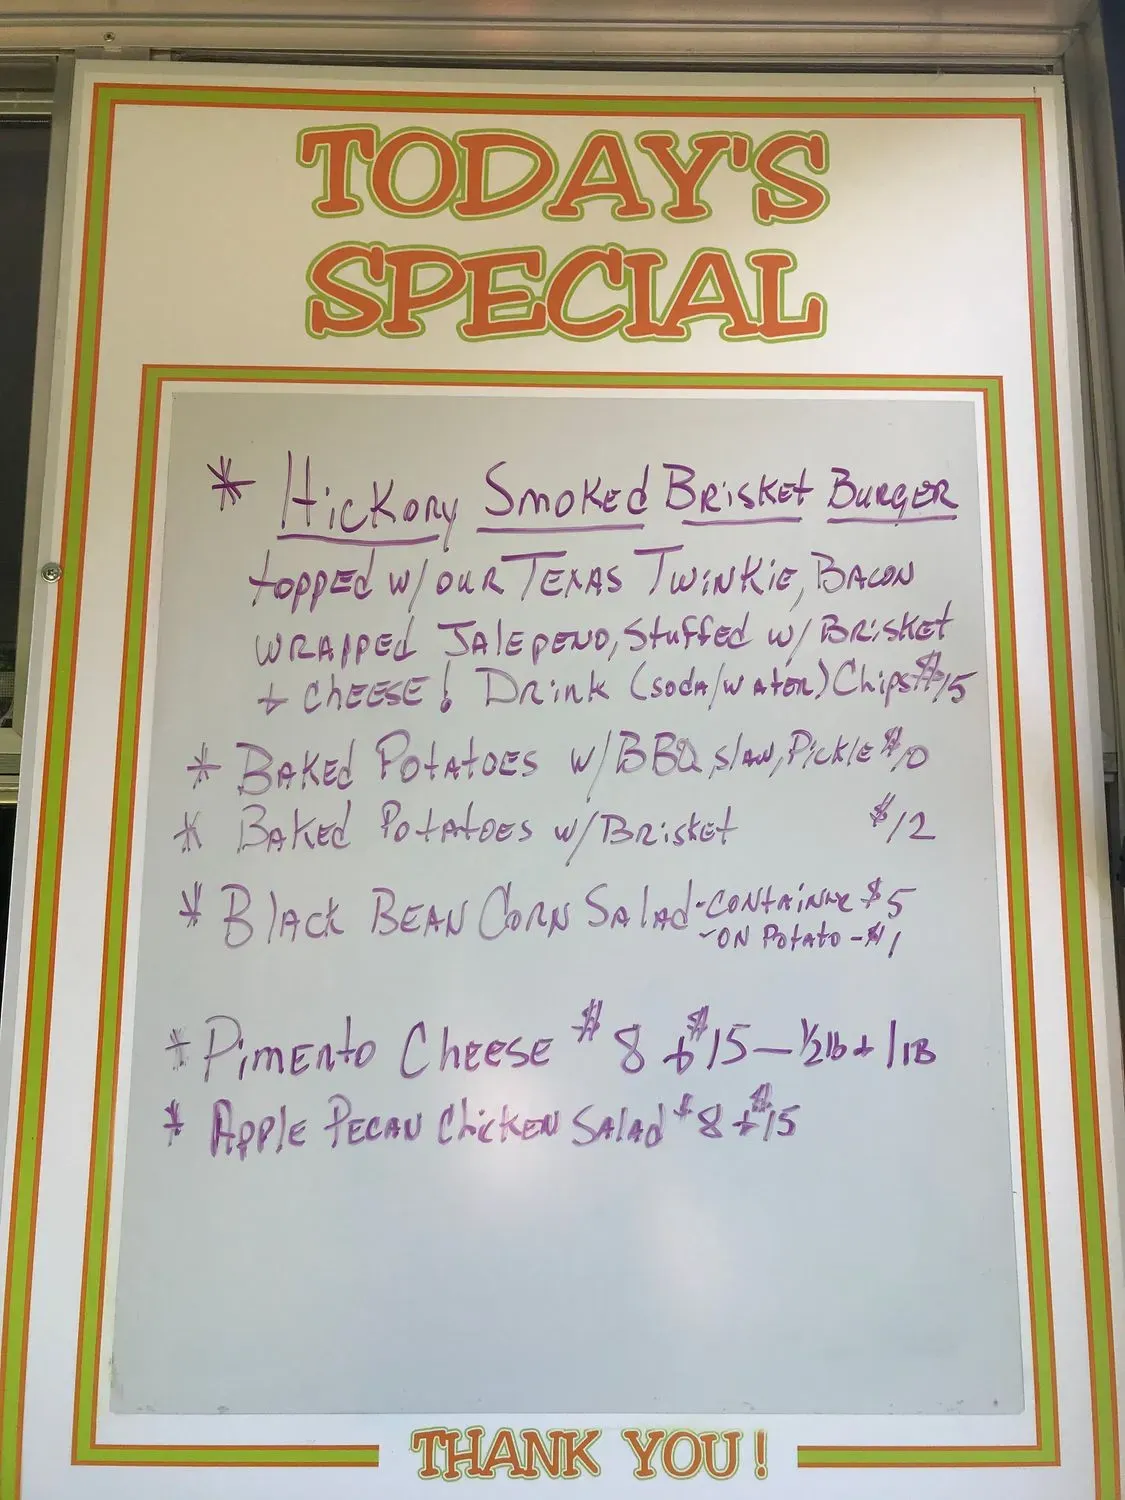 TODAY'S
SPECIAL
* Hickory Smoked Brisket Burger
topped w/ our Texas Twinkie, Bacon
wrapped Jalepeno, Stuffed w/ Brisket
+ cheese! Drink (soda/water) Chips $15
* Baked Potatoes w/ BBQ, slaw, Pickle $10
* Baked Potatoes w/ Brisket $12
* Black Bean Corn Salad - container $5
- on Potato - $1
* Pimento Cheese $8 + $15 — 1/2 lb + 1 lb
* Apple Pecan Chicken Salad $8 + $15
THANK YOU!